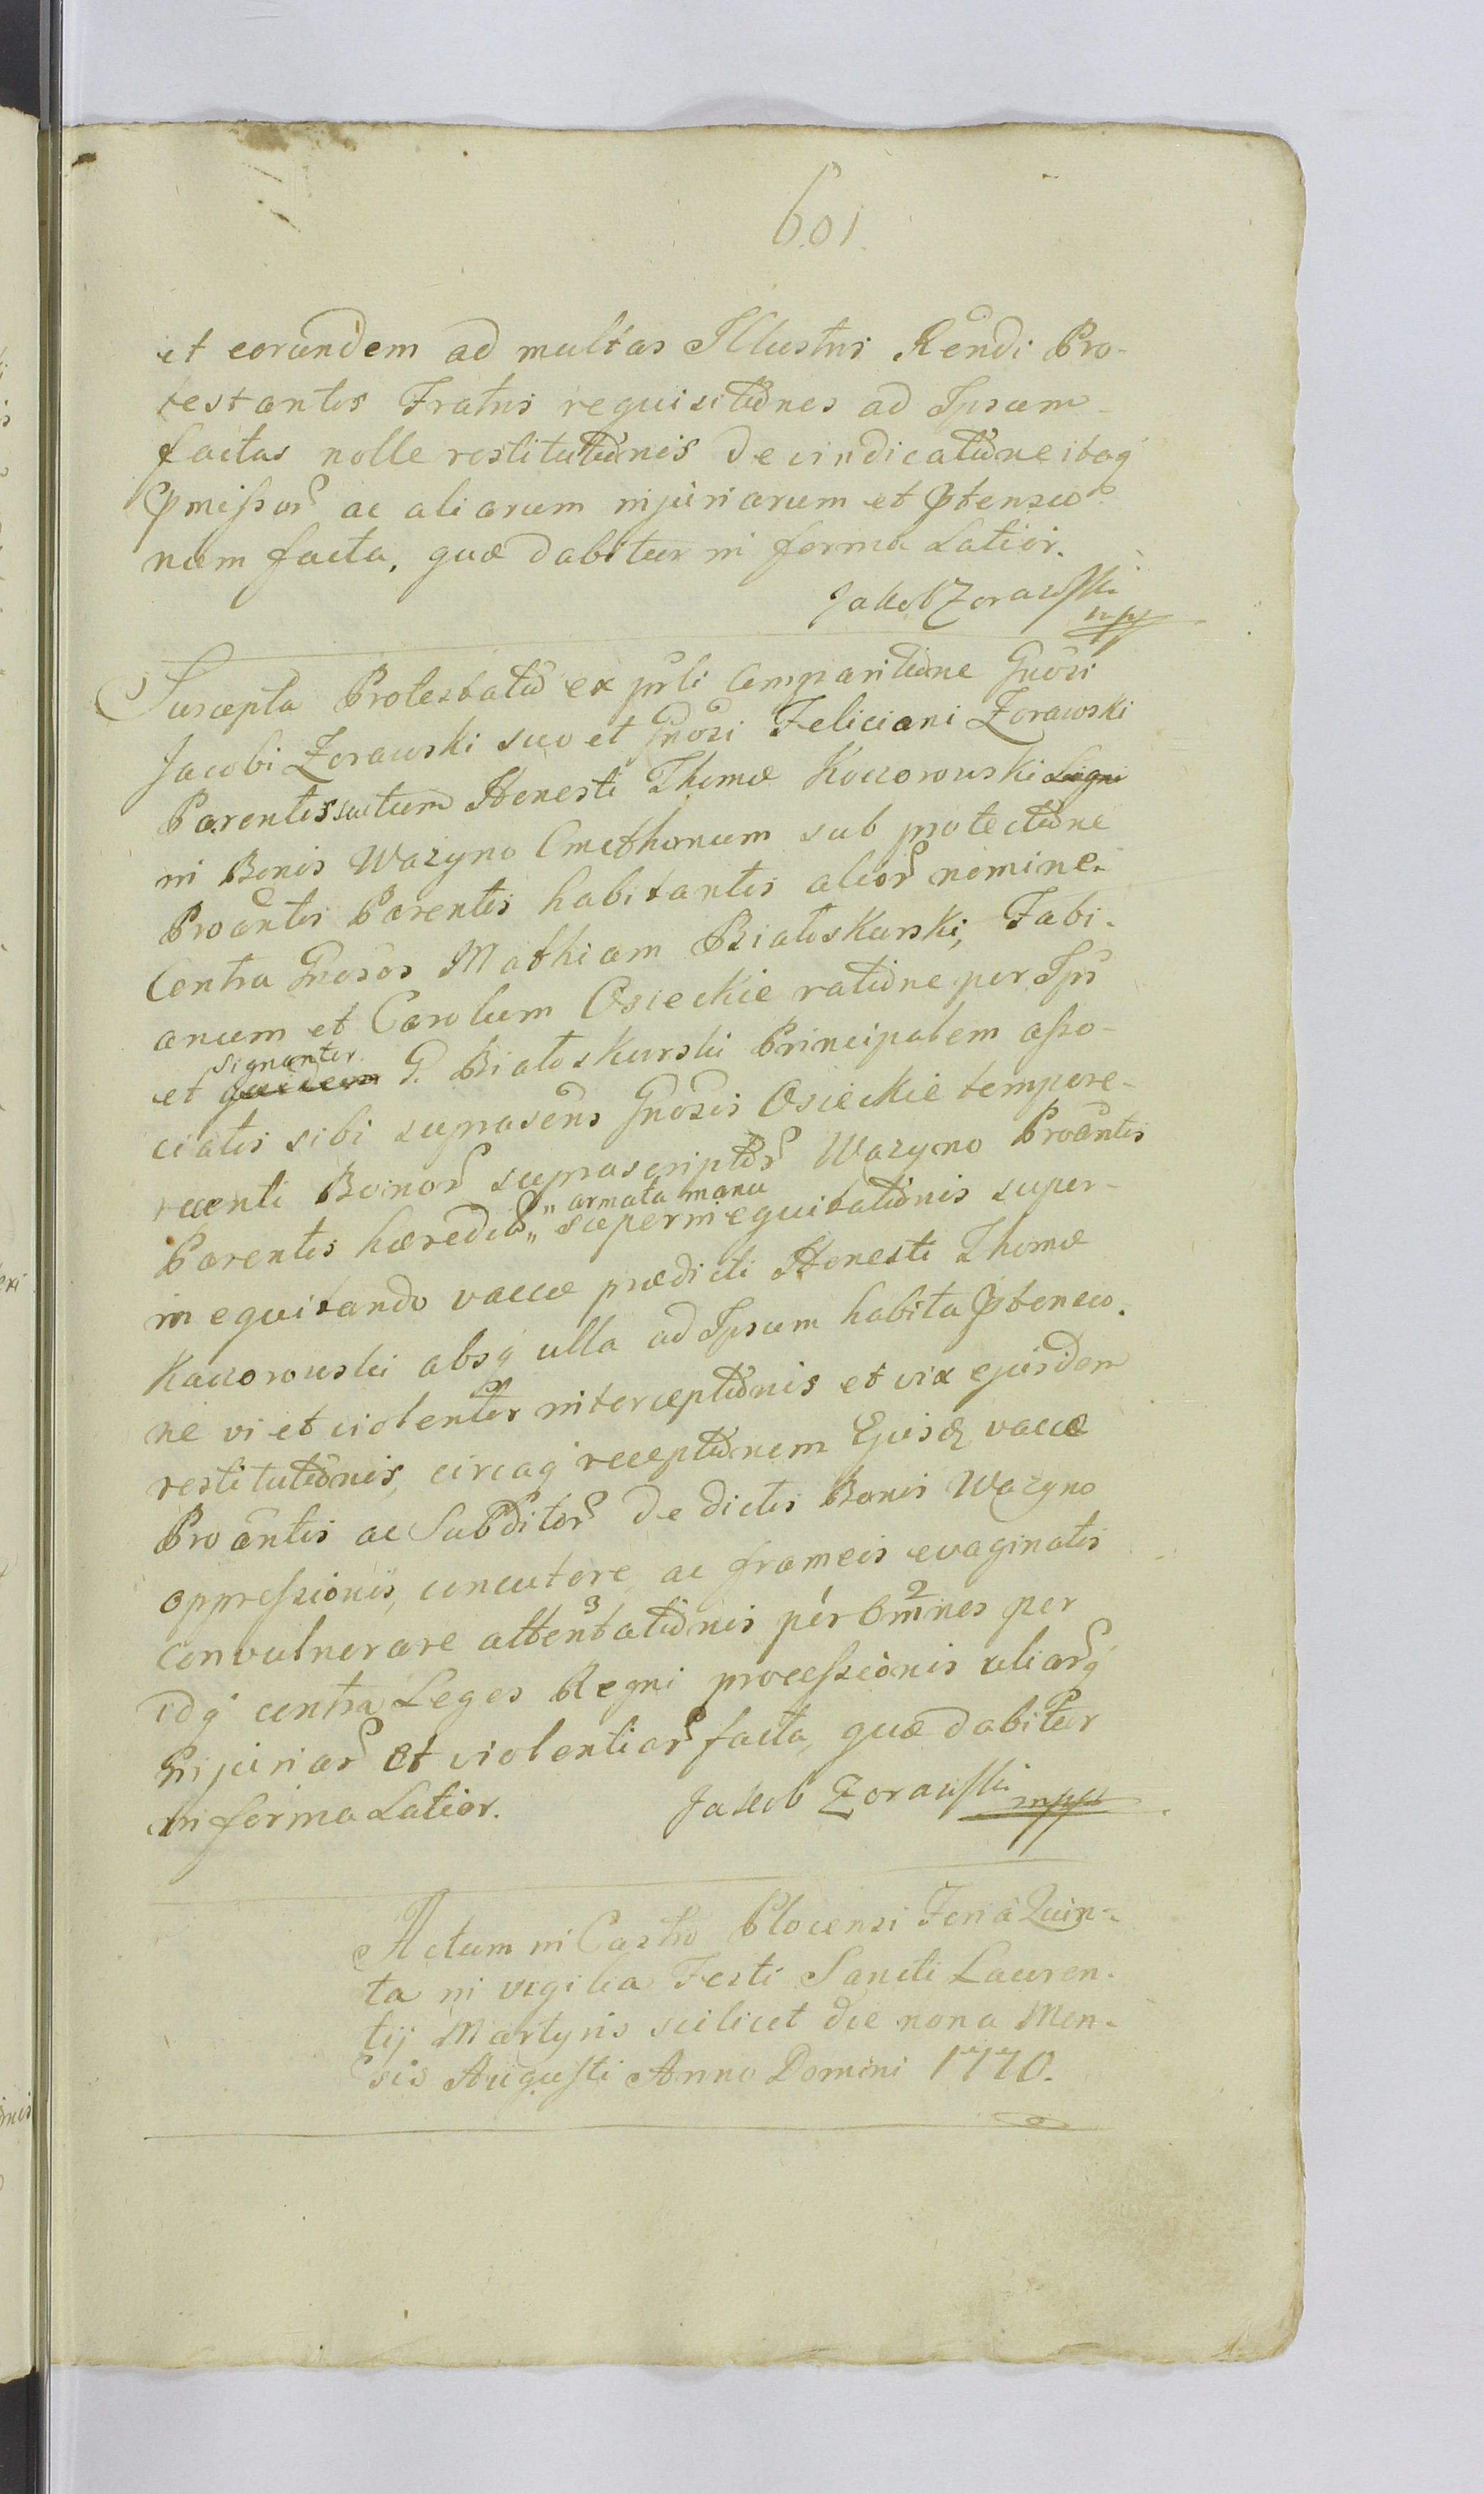 601.
et eorundem ad multas Illustris Rendi Pro-
testantis Fratris requisitiones ad Ipsum
factas nolle restitutionis de vindicatione itaq
Pmissor ac aliarum injuriarum et Ptensio
num facta, quæ dabitur in forma Latior.
Jakob Zorawski
mp
Suscepta Protestatio ex prli Comparitione Gnosi
Jacobi Zorawski suo et Gnosi Feliciani Zorawski
Parentis sui tum Honesti Thomæ Kaczorowski
in Bonis Wazyno Cmethonum sub protectione
Proantis Parentis habitantis alior nomine.
Contra Gnosos Mathiam Białoskurski, Fabi-
anum et Carolum Osieckie ratione per Ips
signanter
et quidem G. Białoskurski Principalem asso-
ciatis sibi suprasens Gnosis Osieckie tempore
recenti Bonor suprascriptor Wazyno Proantis
„ armata manu
Parentis hæredit „ superinequitationis super-
inequitando vaccæ prædicti Honesti Thomæ
Kaczorowski absq ulla ad Ipsum habita Ptensio.
ne vi et violenter interceptionis et vix ejusdem
restitutionis, circaq receptionem Ejusd vaccæ
Proantis ac Subditor de dictis Bonis Wazyno
oppressionis, concutere ac frameis evaginatis
3 2
convulnerare attentationis per Omnes per
idq contra Leges Regni processionis aliarq
Injuriar et violentiar facta, quæ dabitur
in forma Latior.
Jakob Zorawski mpp
Actum in Castro Plocensi Feria Quin-
ta in vigilia Festi Sancti Lauren-
tij Martyris scilicet die nona Men-
sis Augusti Anno Domini 1770.